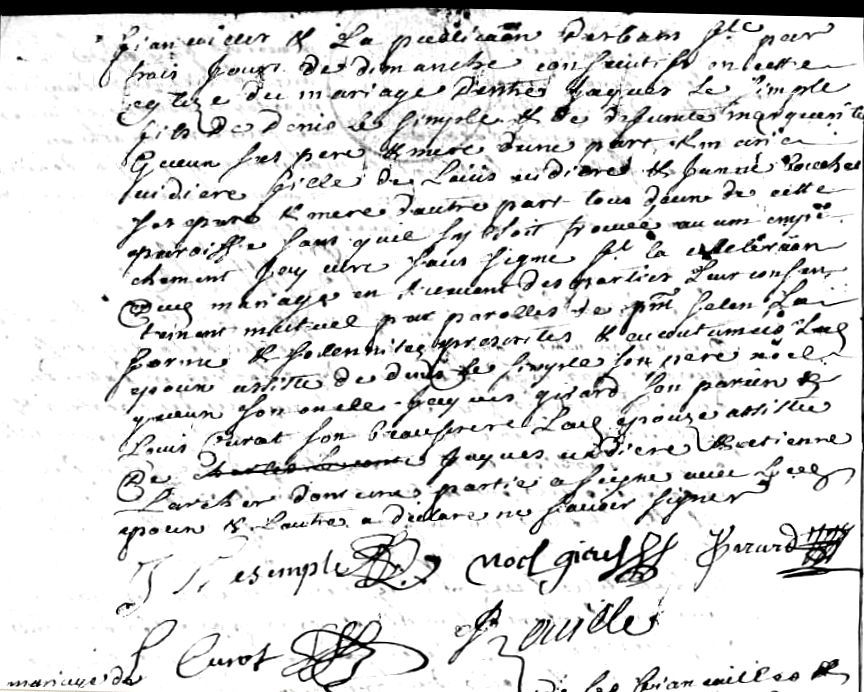 fiancailles & La publicaôn des bans fte par
trois jours de dimanche consecutifs en cette
eglize du mariage dentre Jaques Le simple
fils de Denis le simple & de defunte marguerite
Gueun ses pere & mere dune part &
fille de Louis & Janne
ses pere & mere dautre part tous deux de cette
paroisse sans quil sy soit trouvé aucun empê
chement Jay curé sous signé ft la celebraôn
dud mariage en des parties Leur consen
tement mutuel par parolles de pnt selon La
forme & solennitez prescrites & accoutumées Led
epoux assisté de denis Le simple son pere nöel
gueun son oncle Jacques girard son parein &
Louis Curot son beaufrere Lad epouze assistée
De Jaques & etienne
Larcher dont une partie a signé avec Led
epoux & Lautre a déclaré ne savoir signer
J Lesimple noel Girard
L Curot
mariage de fiancailles &